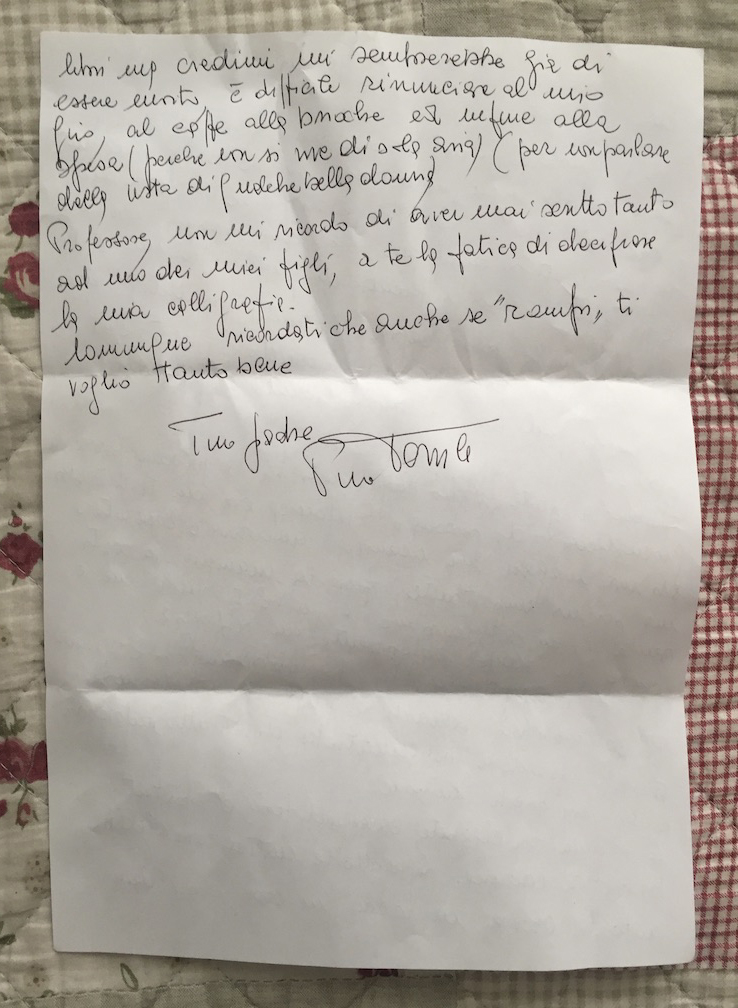 libri ma credimi mi sembrerebbe già di
essere morto, è difficile rinunciare al mio
giro, al caffe alla brioche ed infine alla
spesa (perche non si vive di sola aria) (per non parlare
della vista di qualche bella donna)
Professore, non mi ricordo di aver mai scritto tanto
ad uno dei miei figli, a te la fatica di decifrare
la mia calligrafia.
Comunque ricordati che anche se "rompi", ti
voglio tanto bene
Tuo padre
Pino